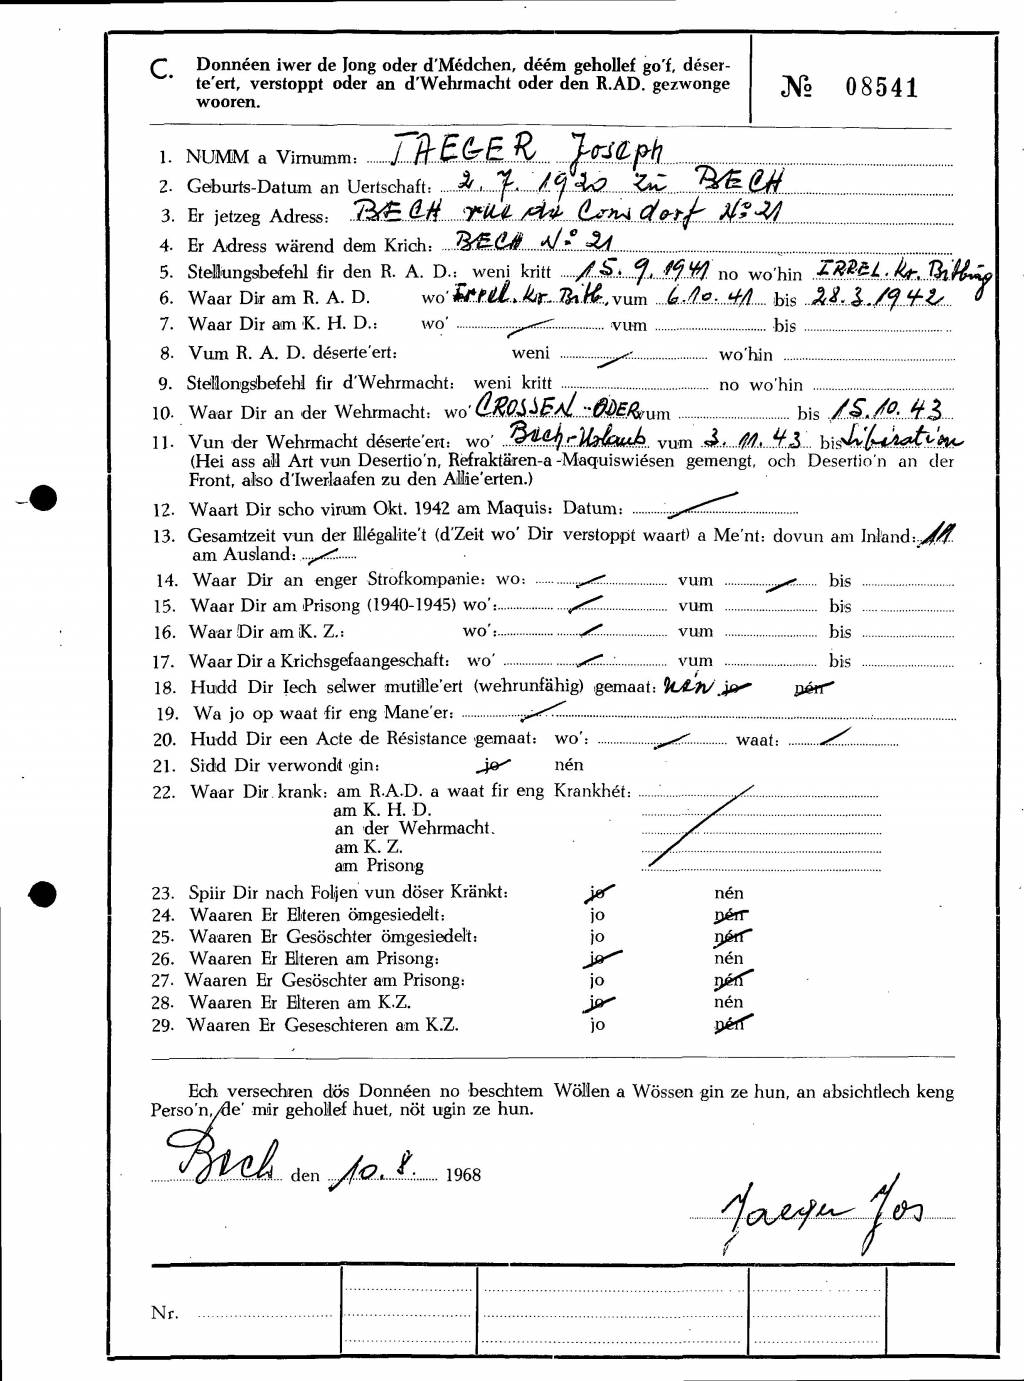 C. Donnéen iwer de Jong oder d'Médchen, déém gehollef go'f, déser-
te'ert, verstoppt oder an d'Wehrmacht oder den R.AD. gezwonge
wooren.
№ 08541
1. NUMM a Virnumm: JAEGER Joseph
2. Geburts-Datum an Uertschaft: 2. 7. 1920 zu BECH
3. Er jetzeg Adress: BECH rue de Consdorf No 21
4. Er Adress wärend dem Krich: BECH No 21
5. Stellungsbefehl fir den R. A. D.: weni kritt 15. 9. 1941 no wo'hin IRREL. Kr. Bitburg
6. Waar Dir am R. A. D. wo' Irrel. Kr. Bitb. vum 6.10. 41 bis 28. 3. 1942
7. Waar Dir am K. H. D.: wo' vum bis
8. Vum R. A. D. déserte'ert: weni wo'hin
9. Stellongsbefehl fir d'Wehrmacht: weni kritt no wo'hin
10. Waar Dir an der Wehrmacht: wo' CROSSEN-ODER vum bis 15.10.43
11. Vun der Wehrmacht déserte'ert: wo' Bech-Urlaub vum 3. 11. 43 bis Liberation
(Hei ass all Art vun Desertio'n, Refraktären-a -Maquiswiésen gemengt, och Desertio'n an der
Front, also d'Iwerlaafen zu den Allie'erten.)
12. Waart Dir scho virum Okt. 1942 am Maquis: Datum:
13. Gesamtzeit vun der Illégalite't (d'Zeit wo' Dir verstoppt waart) a Me'nt: dovun am Inland: 11
am Ausland:
14. Waar Dir an enger Strofkompanie: wo: vum bis
15. Waar Dir am Prisong (1940-1945) wo': vum bis
16. Waar Dir am K. Z.: wo': vum bis
17. Waar Dir a Krichsgefaangeschaft: wo' vum bis
18. Hudd Dir Iech selwer mutille'ert (wehrunfähig) gemaat: nén jo nén
19. Wa jo op waat fir eng Mane'er:
20. Hudd Dir een Acte de Résistance gemaat: wo': waat:
21. Sidd Dir verwondt gin: jo nén
22. Waar Dir krank: am R.A.D. a waat fir eng Krankhét:
am K. H. D.
an der Wehrmacht.
am K. Z.
am Prisong
23. Spiir Dir nach Foljen vun döser Kränkt: jo nén
24. Waaren Er Elteren ömgesiedelt: jo nén
25. Waaren Er Gesöschter ömgesiedelt: jo nén
26. Waaren Er Elteren am Prisong: jo nén
27. Waaren Er Gesöschter am Prisong: jo nén
28. Waaren Er Elteren am K.Z. jo nén
29. Waaren Er Geseschteren am K.Z. jo nén
Ech versechren dös Donnéen no beschtem Wöllen a Wössen gin ze hun, an absichtlech keng
Perso'n, de' mir gehollef huet, nöt ugin ze hun.
Bech den 10. 8. 1968
Jaeger Jos
Nr.